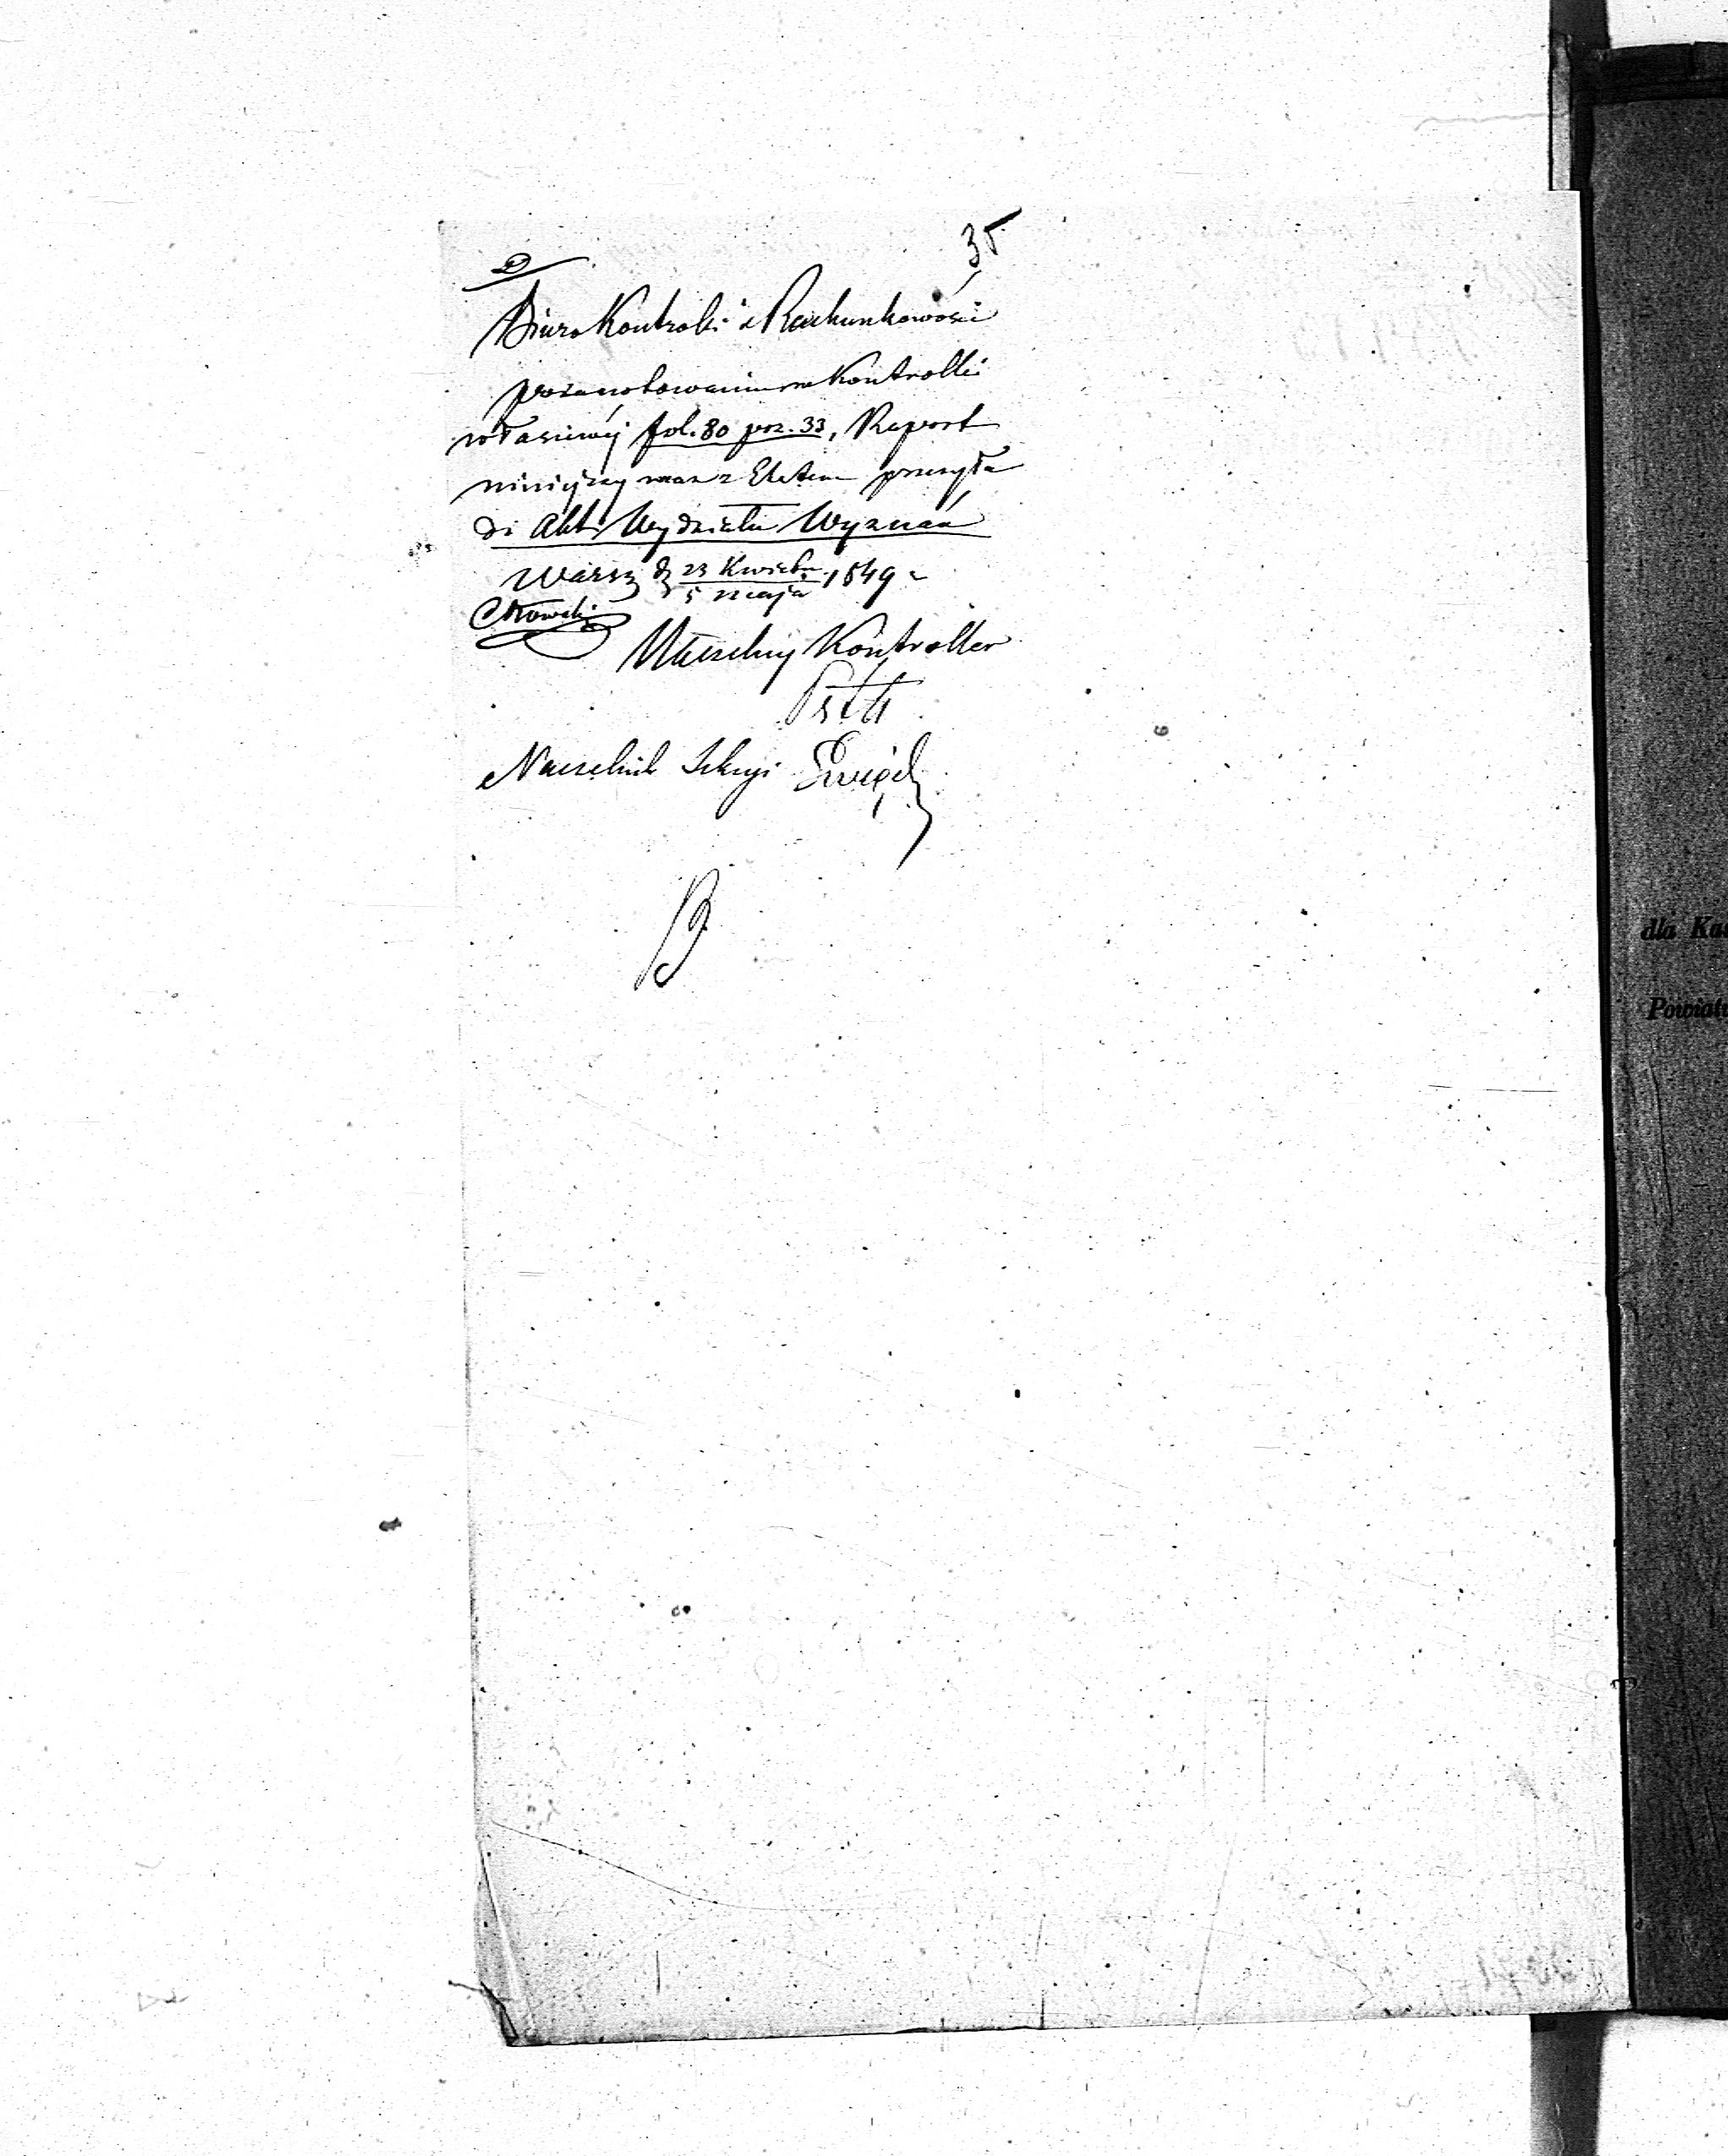 35
Biuro Kontroli i Rachunkowości
po zanotowaniu na Kontrolli
właściwéj fol. 80 poz. 33, Raport
niniejszy wraz z Etatem przesyła
do Akt Wydziału Wyznań
Warsz d 23 Kwietn 1849 r
5 maja
Naczelny Kontroller
Naczelnik Sekcyi
dla Kas
Powiatu